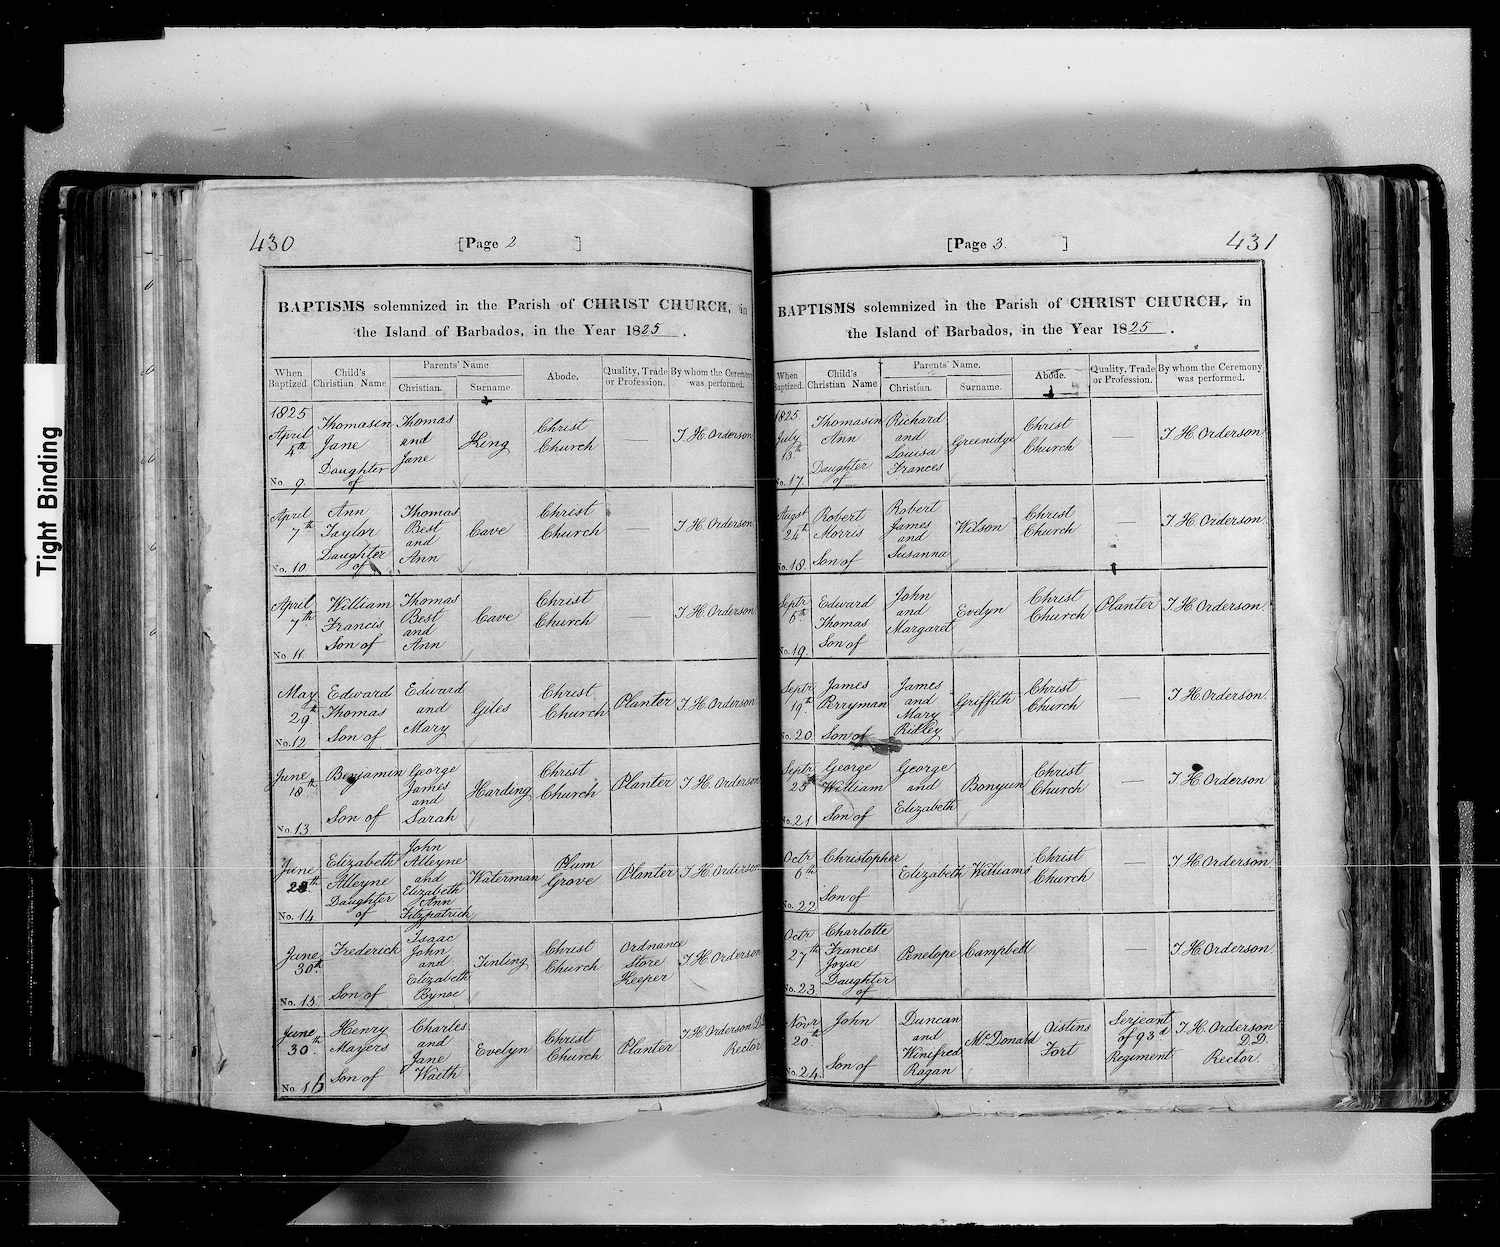 Tight Binding
430
[Page 2 ]
BAPTISMS solemnized in the Parish of CHRIST CHURCH, in
the Island of Barbados, in the Year 1825.
When Baptized.
Child's Christian Name
Parents' Name
Christian.
Surname
Abode.
Quality, Trade or Profession.
By whom the Ceremony was performed.
1825
April 4th
No. 9
Thomasin Jane Daughter of
Thomas and Jane
King
Christ Church
—
T. H. Orderson
April 7th
No. 10
Ann Taylor Daughter of
Thomas Best and Ann
Cave
Christ Church
—
T. H. Orderson
April 7th
No. 11
William Francis Son of
Thomas Best and Ann
Cave
Christ Church
—
T. H. Orderson
May 29th
No. 12
Edward Thomas Son of
Edward and Mary
Giles
Christ Church
Planter
T. H. Orderson
June 18th
No. 13
Benjamin Son of
George James and Sarah
Harding
Christ Church
Planter
T. H. Orderson
June 28th
No. 14
Elizabeth Alleyne Daughter of
John Alleyne and Elizabeth Ann Fitzpatrick
Waterman
Plum Grove
Planter
T. H. Orderson
June 30th
No. 15
Frederick Son of
Isaac John and Elizabeth Bynoe
Tinling
Christ Church
Ordnance Store Keeper
T. H. Orderson
June 30th
No. 16
Henry Mayers Son of
Charles and Jane Waith
Evelyn
Christ Church
Planter
T. H. Orderson
Rector
431
[Page 3. ]
BAPTISMS solemnized in the Parish of CHRIST CHURCH, in
the Island of Barbados, in the Year 1825.
When Baptized.
Child's Christian Name
Parents' Name.
Christian.
Surname.
Abode.
Quality, Trade or Profession.
By whom the Ceremony was performed.
1825
July 13th
No. 17
Thomasin Ann Daughter of
Richard and Louisa Frances
Greenidge
Christ Church
—
T. H. Orderson
Augst 24th
No. 18
Robert Morris Son of
Robert James and Susanna
Wilson
Christ Church
T. H. Orderson
Septr 6th
No. 19
Edward Thomas Son of
John and Margaret
Evelyn
Christ Church
Planter
T. H. Orderson
Septr 19th
No. 20
James Perryman Son of
James and Mary Ridley
Griffith
Christ Church
—
T. H. Orderson
Septr 25
No. 21
George William Son of
George and Elizabeth
Bonyun
Christ Church
—
T. H. Orderson
Octr 6th
No. 22
Christopher Son of
Elizabeth
Williams
Christ Church
—
T. H. Orderson
Octr 27th
No. 23
Charlotte Frances Joyse Daughter of
Penelope
Campbell
T. H. Orderson
Novr 20th
No. 24
John Son of
Duncan and Winifred Ragan
McDonard
Oistins Fort
Serjeant of 93d Regiment
T. H. Orderson D.D.
Rector.